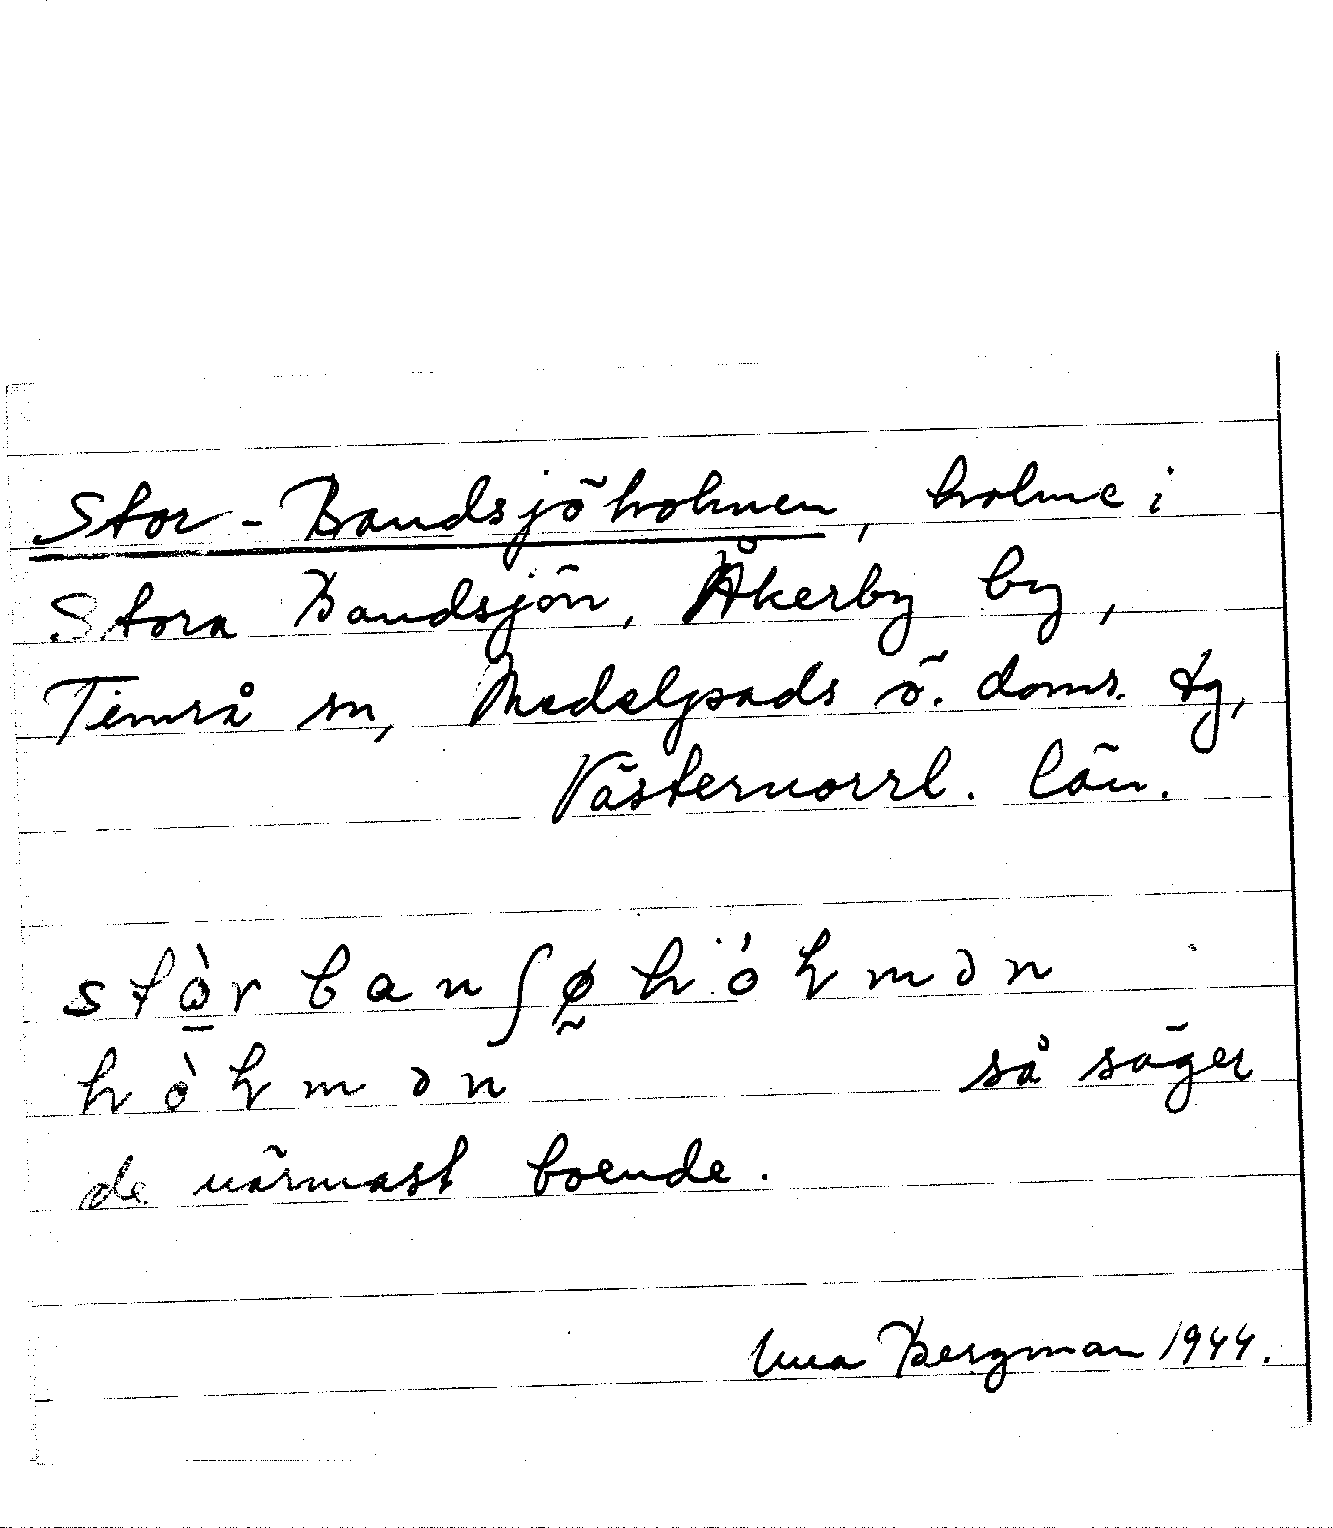 Stor-Bandsjöholmen, holme i
Stora Bandsjön, Åkerby by,
Timrå sn, Medelpads ö. doms. tg,
Västernorrl. län.
stò̱rbanʃø̰hólmən
hòlmən så säger
de närmast boende.
Una Bergman 1944.